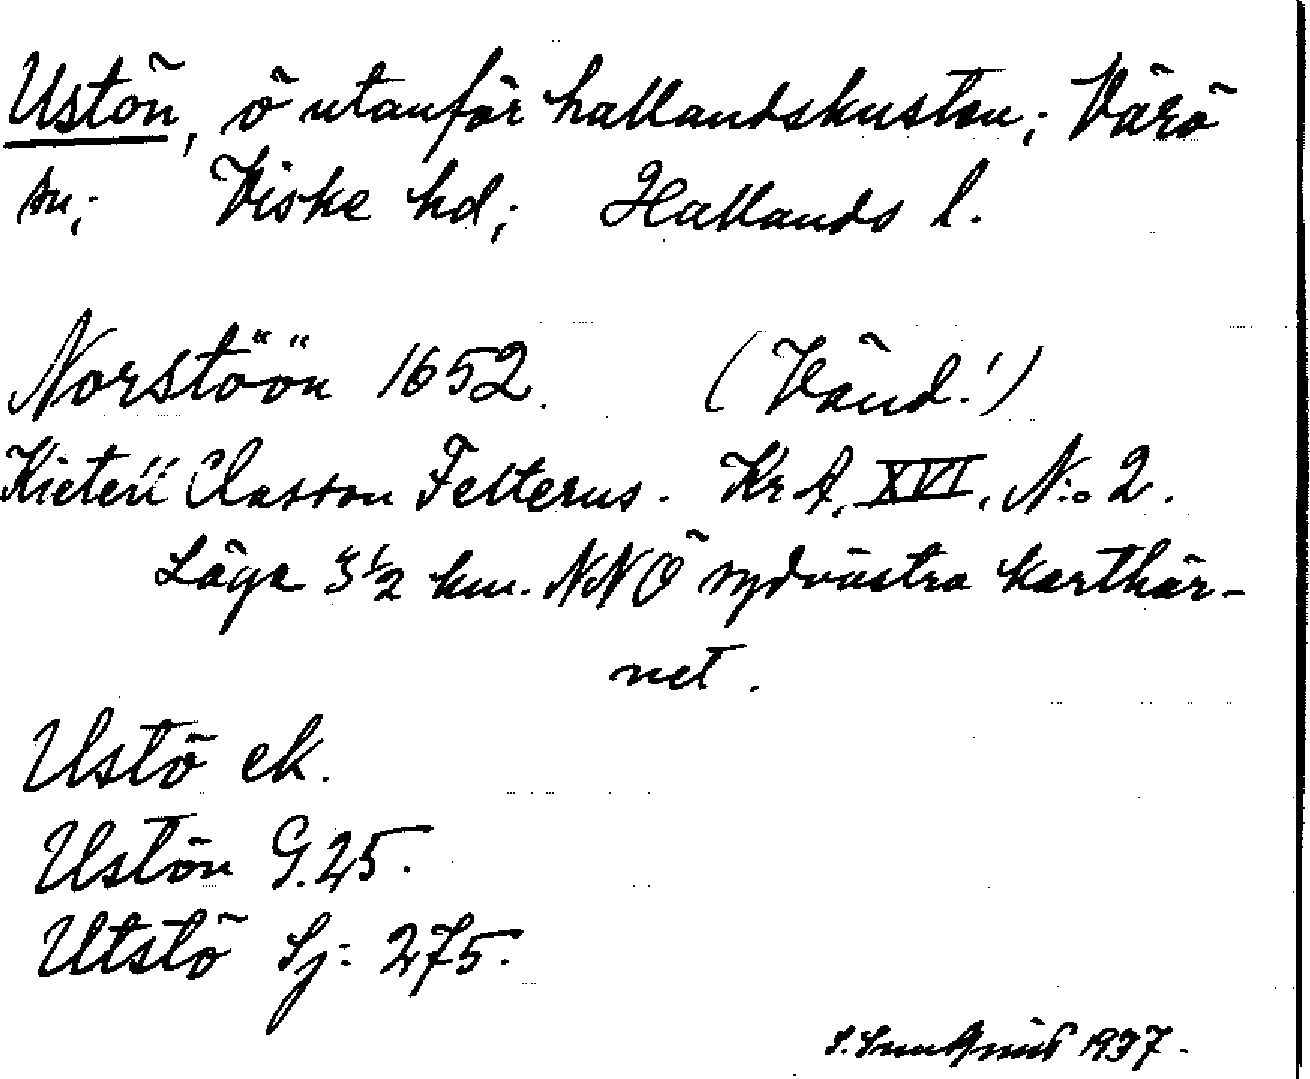 Ustön, ö utanför hallandskusten; Värö
sn; Viske hd; Hallands l.
Norstöön 1652. (Vänd!)
Kietell Classon Felterus. Kr A, XVI, N:o 2.
Läge 3 1/2 km. NNÖ sydvästra karthör-
net.
Ustö ek.
Ustön G. 25.
Utstö Sj: 275.
1937.